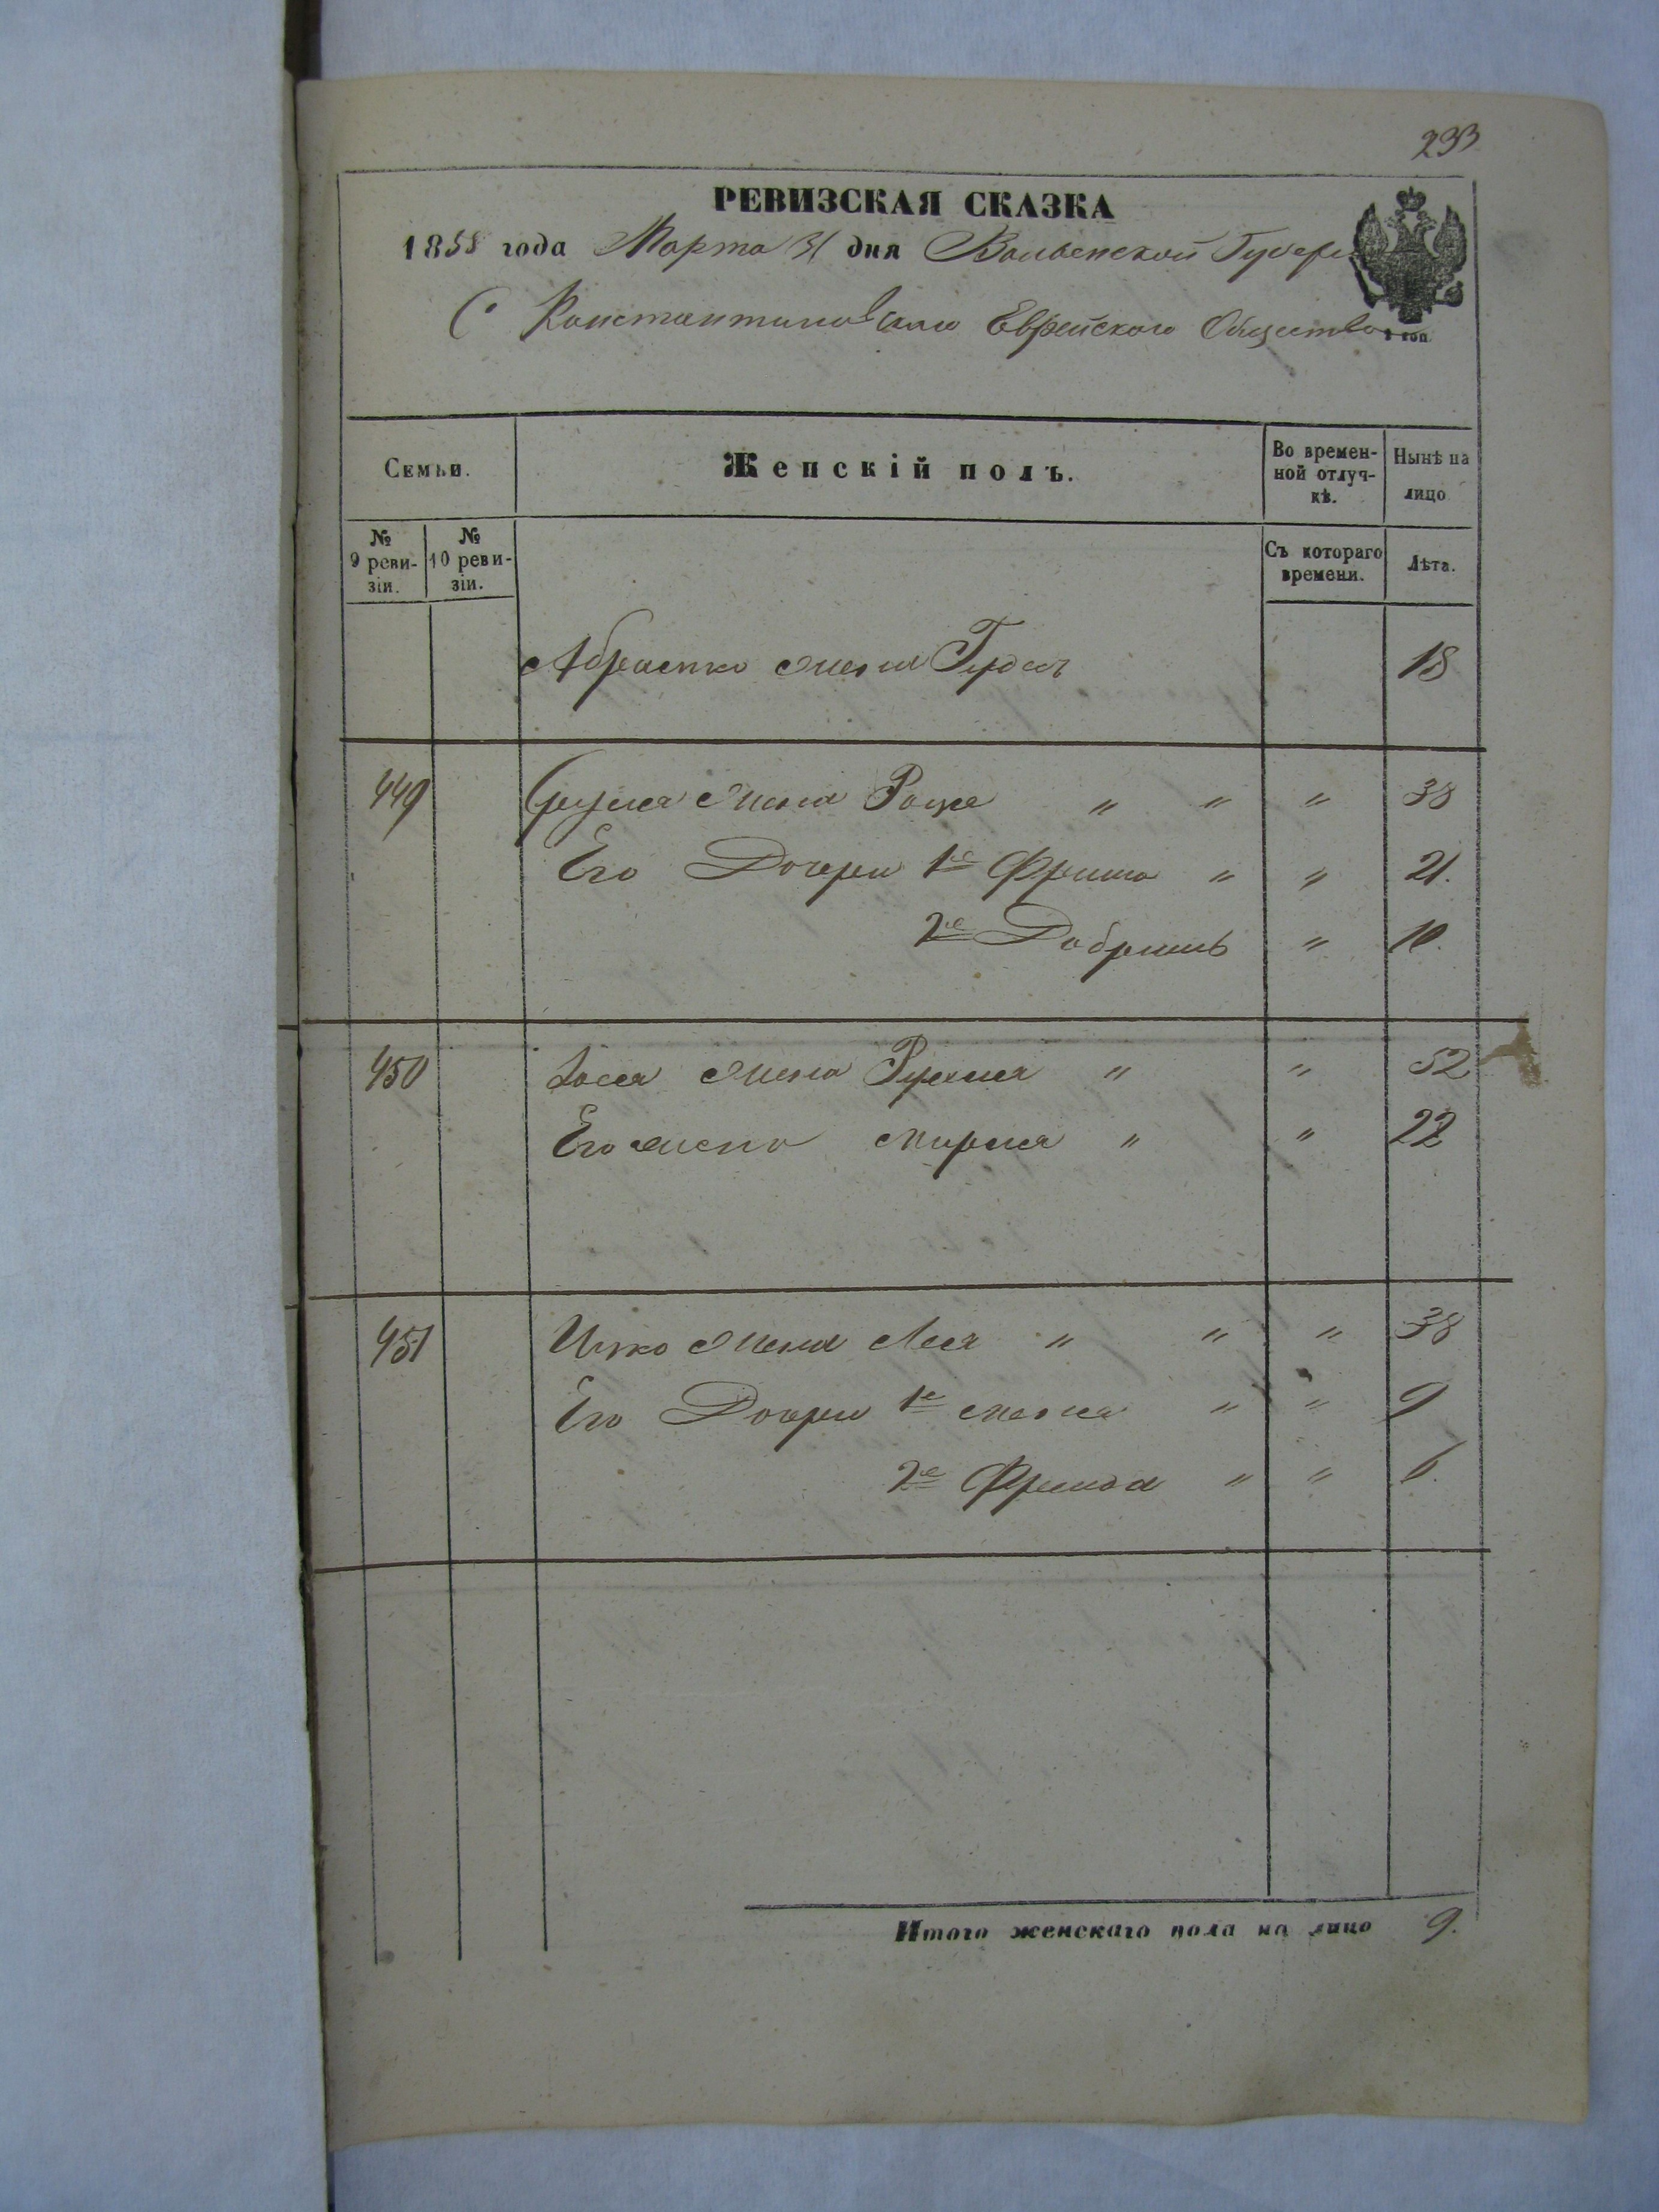 233
РЕВИЗСКАЯ СКАЗКА
1858 года Марта 31 дня Волынской Губерн
Константиновскаго Еврейского Общества
Семьи.
Женскій полъ.
Во времен-
ной отлуч-
кѣ.
Нынѣ на
лицо
№
9 реви-
зіи.
№
10 реви-
зіи.
Съ котораго
времени.
Лѣта.
жена 18
449 жена " " " 38
Его Дочери 1е " " 21.
2е Добришъ " 10.
450 жена " " 52
Его жена Мирля " " 22
451 Ицко жена Лея " " " 38
Его Дочери 1е " " 9
2е Фрейда " " 6.
Итого женскаго пола на лицо 9.